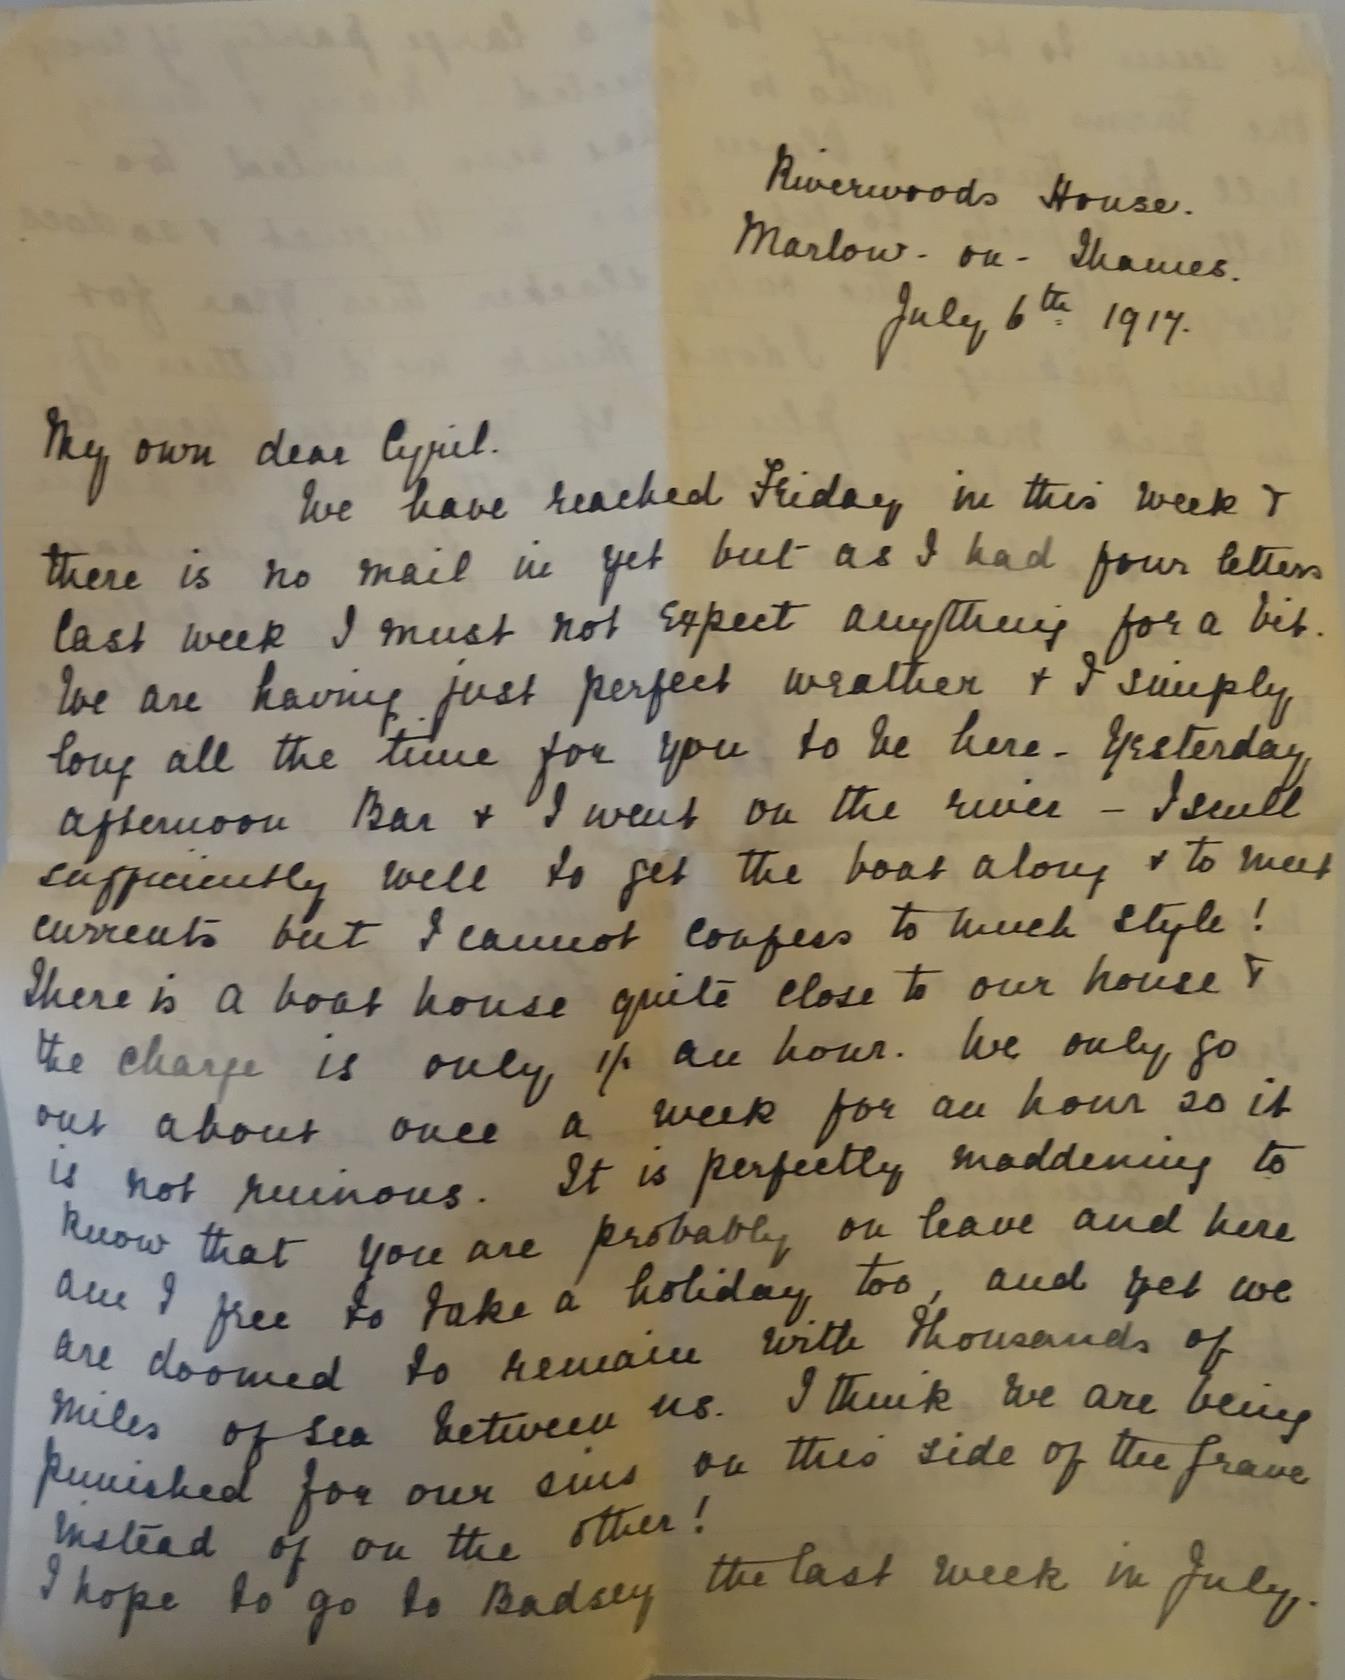 Riverwoods House.
Marlow - on - Thames.
July 6th 1917.
My own dear Cyril.
We have reached Friday in this week &
there is no mail in yet but as I had four letters
last week I must not expect anything for a bit.
We are having just perfect weather & I simply
long all the time for you to be here - Yesterday
afternoon Bar & I went on the river - I scull
sufficiently well to get the boat along & to meet
currents but I cannot confess to much style!
There is a boat house quite close to our house &
the charge is only 1/- an hour. We only go
out about once a week for an hour so it
is not ruinous. It is perfectly maddening to
know that you are probably on leave and here
am I free to take a holiday too, and yet we
are doomed to remain with thousands of
miles of sea between us. I think we are being
punished for our sins on this side of the grave
instead of on the other!
I hope to go to Badsey the last week in July.